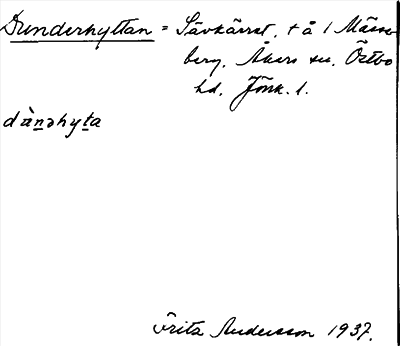 Dunderhyttan = Sävkärret, t å 1 Mässe-
berg, Åkers sn, Östbo
hd, Jönk. l.
dànəhyta
Frits Andersson 1937.